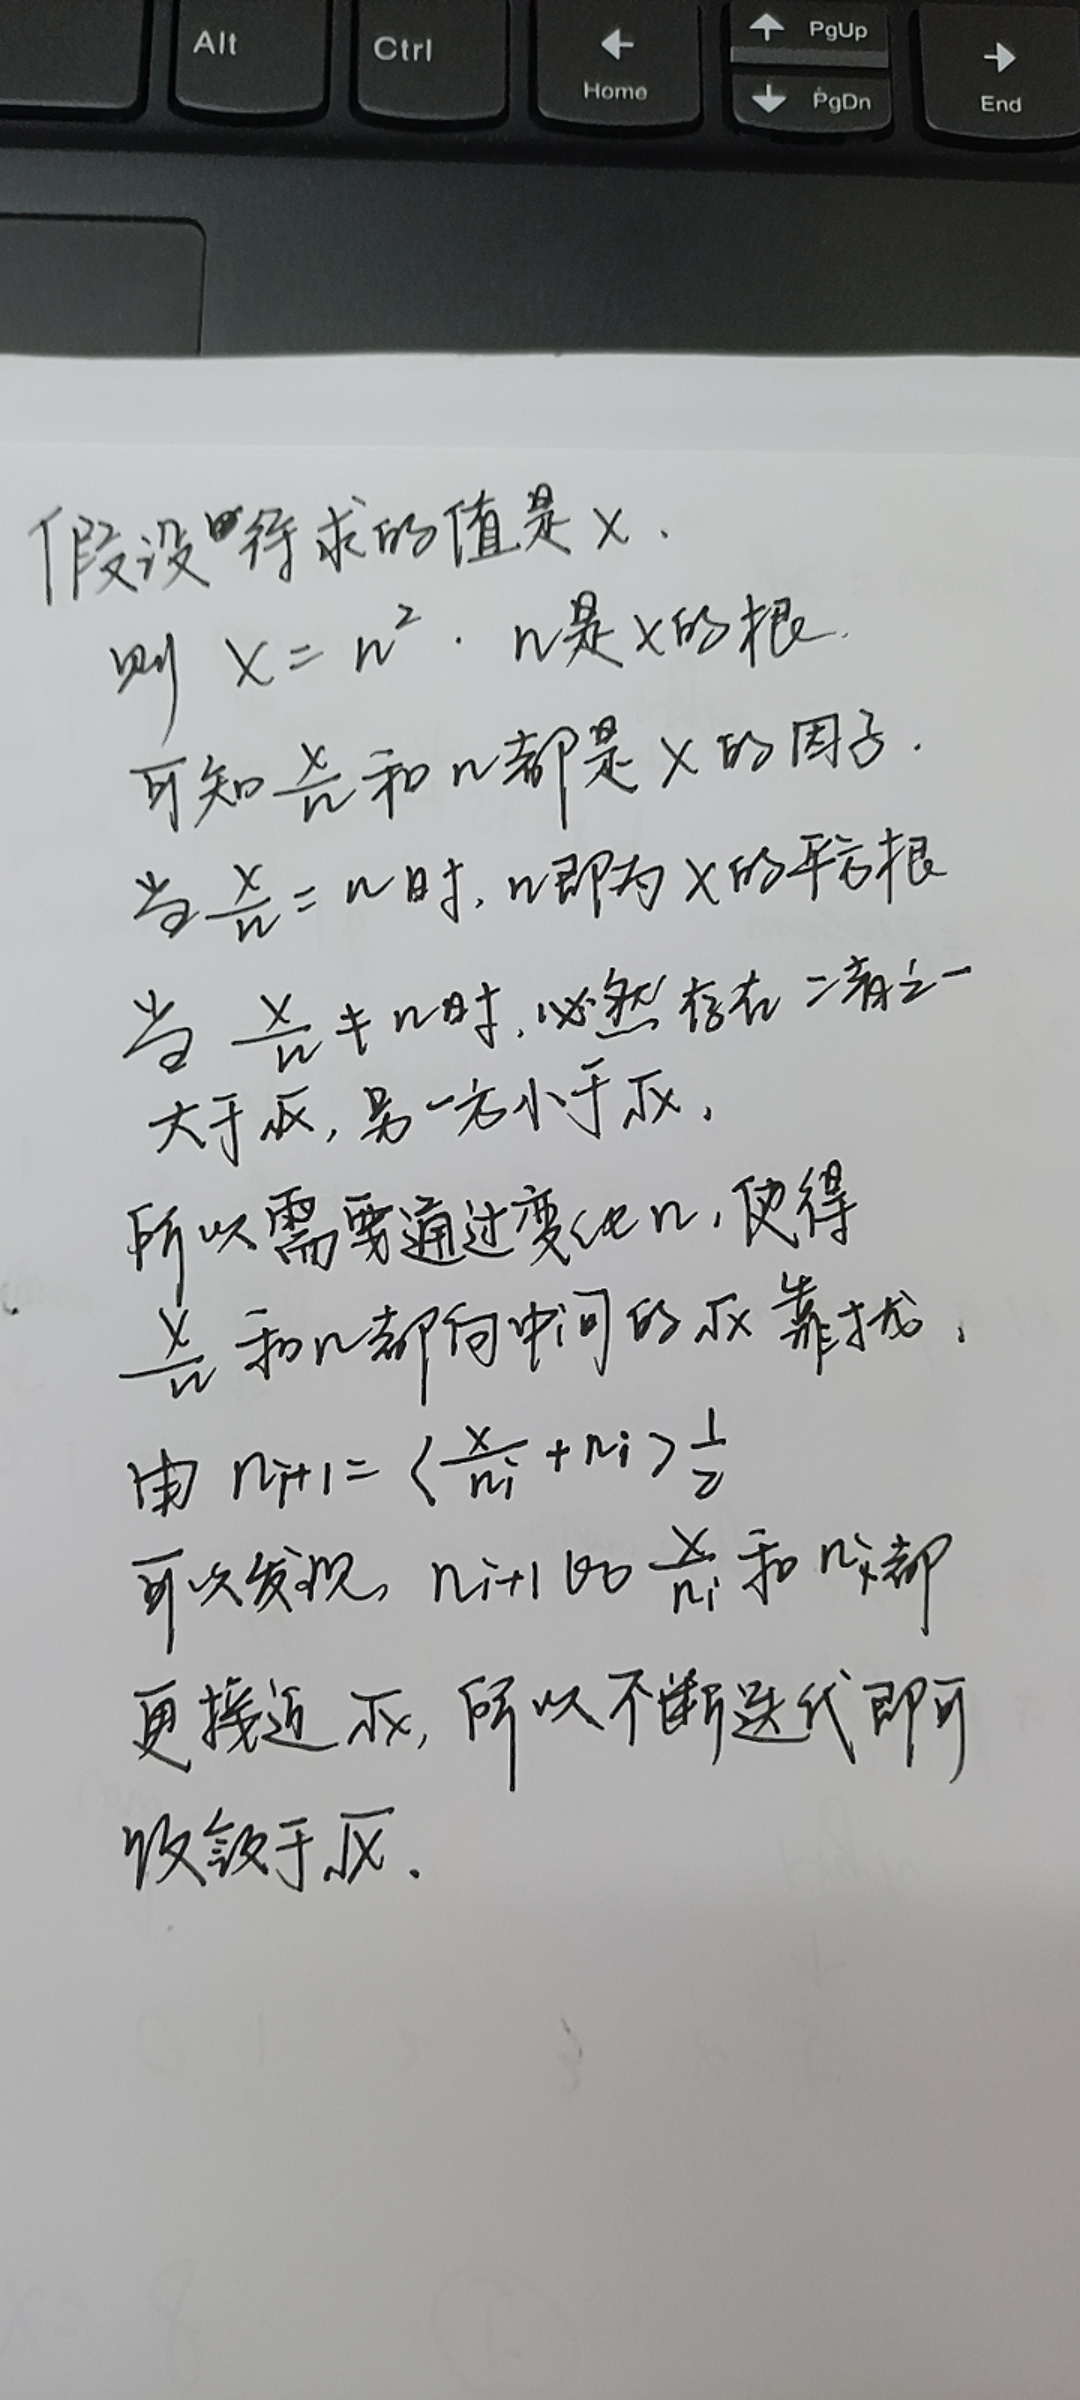 Alt Ctrl ← Home ↑ PgUp ↓ PgDn → End
假设待求的值是x.
则 x = n². n是x的根.
可知 x/n 和n都是x的因子.
当 x/n = n时, n即为x的平方根
当 x/n ≠ n时, 必然存在二者之一
大于√x, 另一方小于√x,
所以需要通过变化n, 使得
x/n 和n都向中间的√x靠拢,
由 nᵢ₊₁ = (x/nᵢ + nᵢ) 1/2
可以发现, nᵢ₊₁ 比 x/nᵢ 和 nᵢ都
更接近√x, 所以不断迭代即可
收敛于√x.